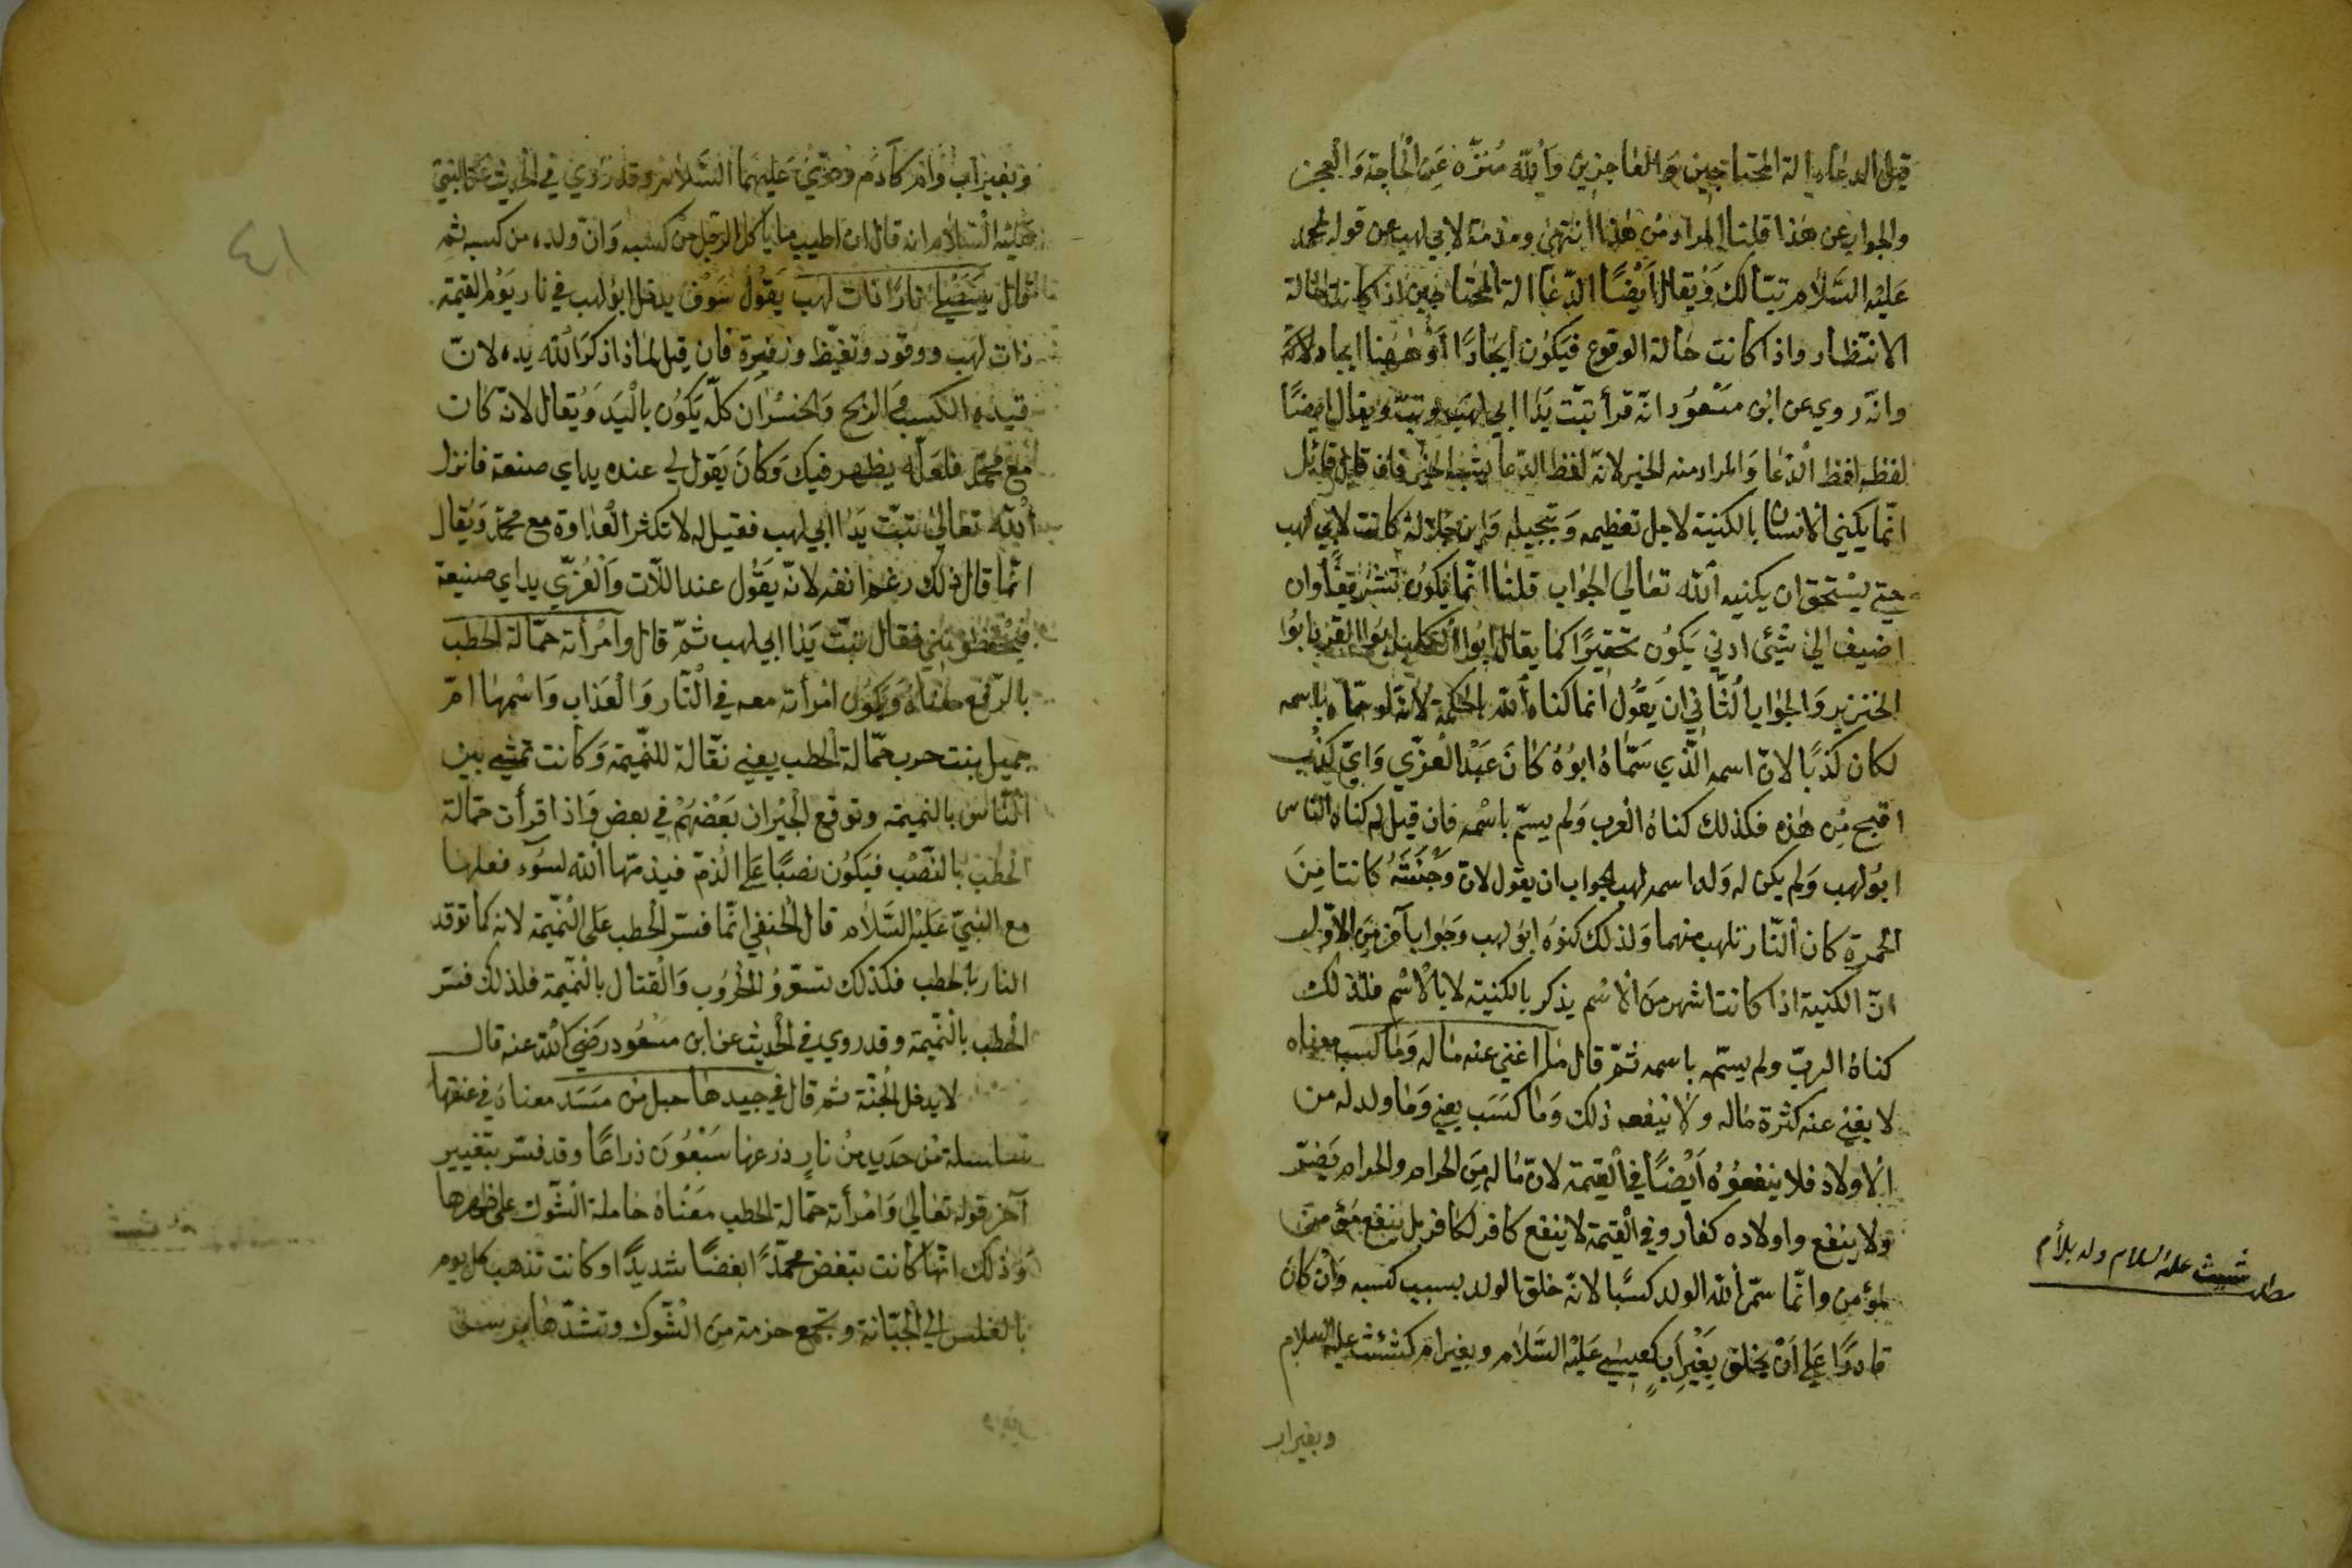 قيل الدعاء الة المحتاجين والعاجزين والله منزّه عن الحاجة والعجز
والجواب عن هذا قلنا المراد من هذا انتهى ومذمة لابي لهب عن قوله لمحمد
عليه السّلام تبّا لك ويقال ايضًا الدّعا الة المحتاجين اذا كانت حالة
الانتظار واذا كانت حالة الوقوع فيكون ايجادًا وههنا ايجاد لانّه
وانّه روي عن ابن مسعود انّه قرأ تبّت يدا ابي لهب وتبّ ويقال ايضًا
لفظه لفظ الدّعا والمراد منه الخبر لانّ لفظ الدّعا يشبه الخبر فان قال قائل
انّما يكنى الانسان بالكنية لاجل تعظيمه وتبجيله واين جلالة كانت لابي لهب
حتى يستحق ان يكنيه الله تعالى الجواب قلنا انّما يكون تشريفًا وان
اضيف الى شئ ادنى يكون تحقيرًا كما يقال ابوا الكلب ابوا القرد ابوا
الخنزير والجواب الثّاني ان يقول انما كناه الله بالحكمة لانه لو سمّاه باسمه
لكان كذبًا لانّ اسمه الّذي سمّاه ابوه كان عبد العزّي وايّ كذب
اقبح من هذه فكذلك كناه العرب ولم يسمّ باسمه فان قيل لم كناه الناس
ابو لهب ولم يكن له ولد اسمه لهب الجواب ان يقول لانّ وجنته كانتا من
الحمرة كان النّار تلهب منهما ولذلك كنوه ابو لهب وجواب آخر من الاوّل
انّ الكنية اذا كانت اشهر من الاسم يذكر بالكنية لا بالاسم فلذلك
كناه الربّ ولم يسمّه باسمه ثمّ قال ما اغنى عنه ماله وما كسب معناه
لا يغني عنه كثرة ماله ولا ينفعه ذلك وما كسب يعني وما ولد له من
الاولاد فلا ينفعوه ايضًا في القيمة لانّ ماله من الحرام والحرام يضرّ
ولا ينفع واولاده كفار وفي القيمة لا ينفع كافر لكافر بل ينفع مؤمن
لمؤمن وانّما سمّى الله الولد كسبًا لانّه خلق الولد بسبب كسبه وان كان
قادرًا على ان يخلق بغير اب كعيسى عليه السّلام وبغير ام كشيث عليه السلام
وبغير اب
مطلب شيث عليه السلام ولد بلا أم
وبغير اب وام كآدم وحوّى عليهما السّلام وقد روي في الحديث عن النبيّ
عليه السّلام انه قال ان اطيب ما يأكل الرّجل من كسبه وان ولده من كسبه ثم
قال سيصلى نارًا ذات لهب يقول سوف يدخل ابو لهب في نار يوم القيمة
ذات لهب ووقود وتغيّظ وزفيرة فان قيل لماذا ذكر الله يده لانّ
قيده الكسب في الربح والخسران كلّه يكون باليد ويقال لانّه كان
مع محمّد فلعلّه يظهر فيك وكان يقول لي عنده يداي صنعة فانزل
الله تعالى تبّت يدا ابي لهب فقيل له لا تكثر العداوة مع محمّد ويقال
انّما قال ذلك رغم انفه لانّه يقول عند اللّات والعزّي يداي صنيعة
فقال تبّت يدا ابي لهب ثمّ قال وامرأته حمّالة الحطب
بالرّفع معناه ويكون امرأته معه في النّار والعذاب واسمها امّ
جميل بنت حرب حمّالة الحطب يعني نقّالة للنّميمة وكانت تمشي بين
النّاس بالنميمة وتوقع الجيران بعضهم في بعض واذا قرأت حمّالة
الحطب بالنّصب فيكون نصبًا على الذمّ فيذمّها الله لسوء فعلها
مع النبيّ عليه السّلام قال الحنفي انّما فسّر الحطب على النّميمة لانه كما توقد
النار بالحطب فكذلك تسعّر الحروب والقتال بالنّميمة فلذلك فسّر
الحطب بالنّميمة وقد روي في الحديث عن ابن مسعود رضي الله عنه قال
لا يدخل الجنّة ثم قال في جيدها حبل من مسد معناه في عنقها
سلسلة من حديد من نار ذرعها سبعون ذراعًا وقد فسّر بتفسير
آخر قوله تعالى وامرأته حمّالة الحطب معناه حاملة الشّوك على ظهرها
وذلك انّها كانت تبغض محمّدًا بغضًا شديدًا وكانت تذهب كل يوم
بالغلس الى الجبّانة وتجمع حزمة من الشّوك وتشدّها
٤١